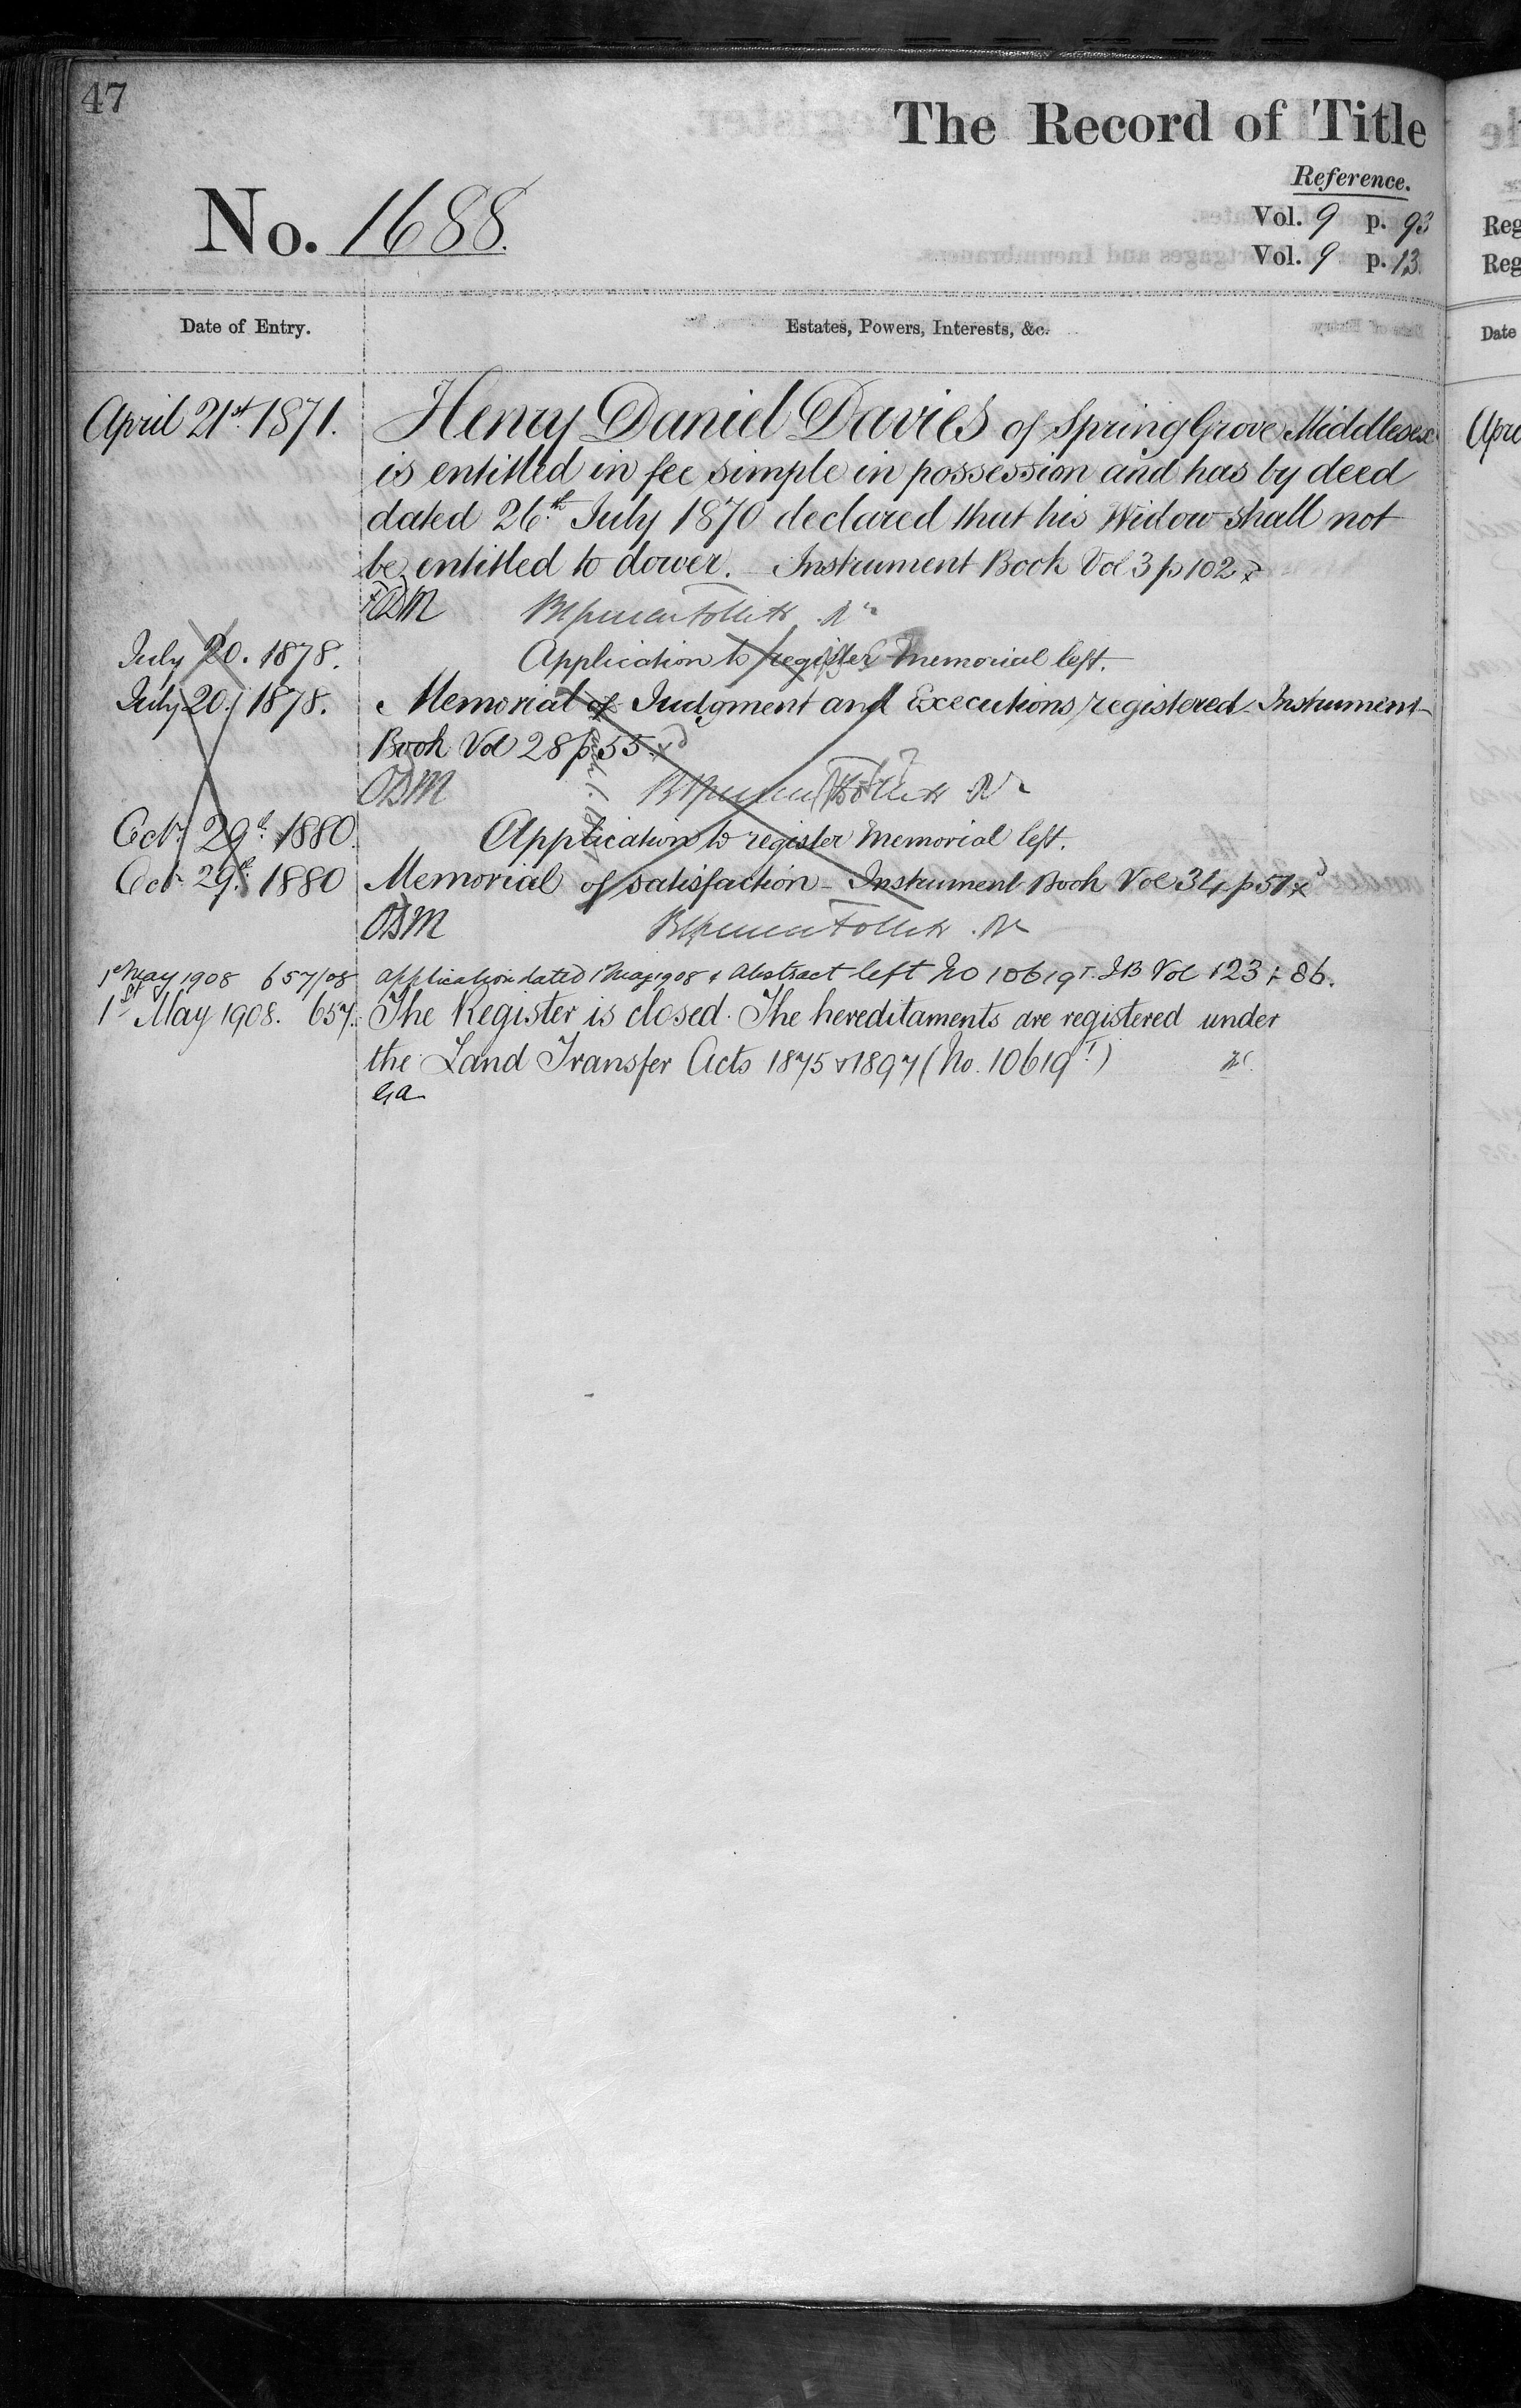 47
The Record of Title
Reference.
No. 1688.
Vol. 9 p. 93
Vol. 9 p. 13
Date of Entry.
Estates, Powers, Interests, &c.
April 21st 1871. Henry Daniel Davies of Spring Grove Middlesex
is entitled in fee simple in possession and has by deed
dated 26th July 1870 declared that his Widow shall not
be entitled to dower. Instrument Book Vol 3 p 102
ODM
July 20. 1878. Application to register Memorial left.
July 20. 1878. Memorial of Judgment and Executions registered Instrument
Book Vol 28 p 55
ODM
Octr 29th 1880. Application to register Memorial left.
Octr 29th 1880 Memorial of satisfaction - Instrument Book Vol 34 p 51
ODM
1st May 1908 657/08 application dated 1 May 1908 & Abstract left No 10619T. IB Vol 123 F 86.
1st May 1908. 657. The Register is closed. The hereditaments are registered under
the Land Transfer Acts 1875 & 1897 (No. 10619T)
Reg
Reg
Date